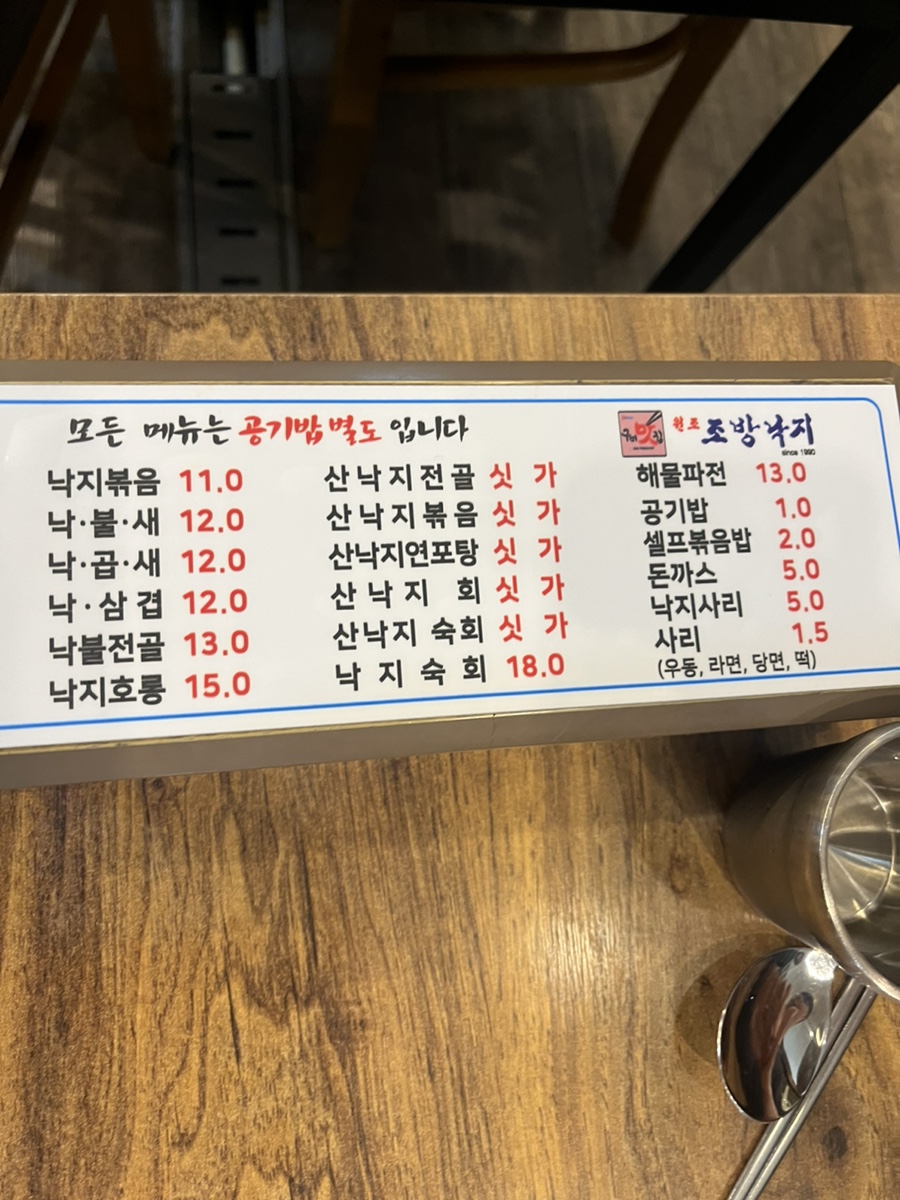 모든 메뉴는 공기밥 별도 입니다
낙지볶음 11.0
낙·불·새 12.0
낙·곱·새 12.0
낙·삼겹 12.0
낙불전골 13.0
낙지호롱 15.0
산낙지전골 싯 가
산낙지볶음 싯 가
산낙지연포탕 싯 가
산낙지 회 싯 가
산낙지 숙회 싯 가
낙지숙회 18.0
원조 조방낙지
since 1990
해물파전 13.0
공기밥 1.0
셀프볶음밥 2.0
돈까스 5.0
낙지사리 5.0
사리 1.5
(우동, 라면, 당면, 떡)